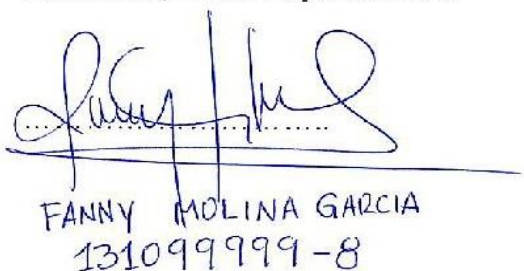 FANNY MOLINA GARCIA
131099999-8